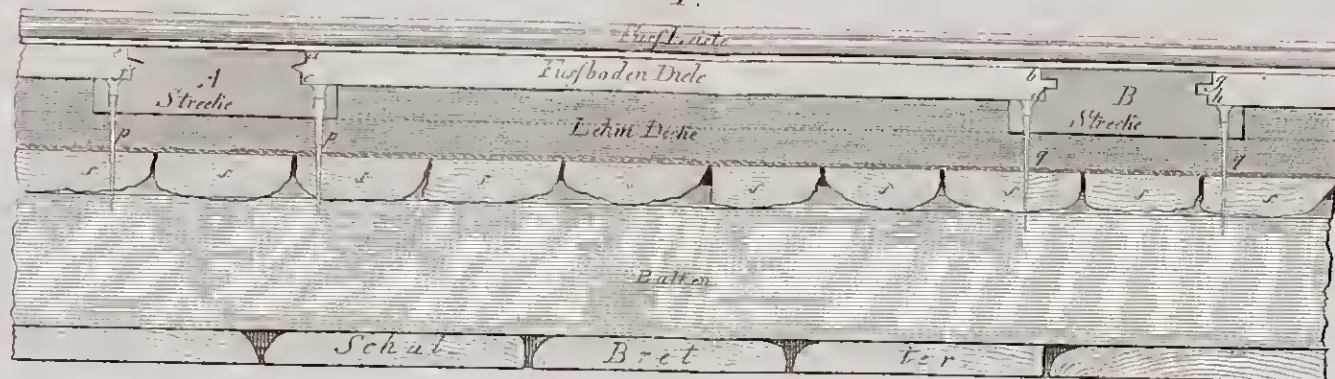 Fusf Leiste
A
Strecke
Fusfboden Diele
B
Strecke
Lehm Decke
p p q q
s s s s s s s s s
Balken
Schal Bret ter